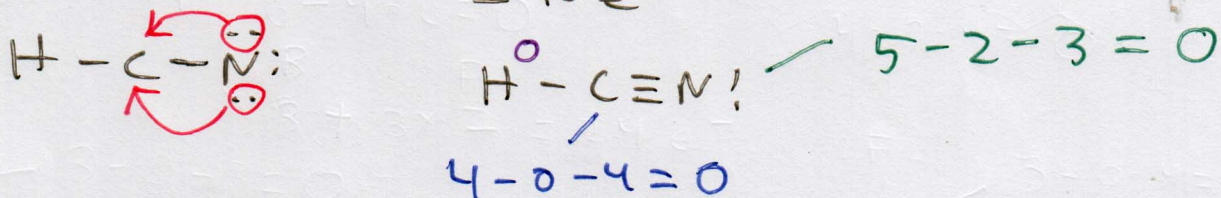 H - C - N:
O
H - C ≡ N:
5 - 2 - 3 = 0
4 - 0 - 4 = 0